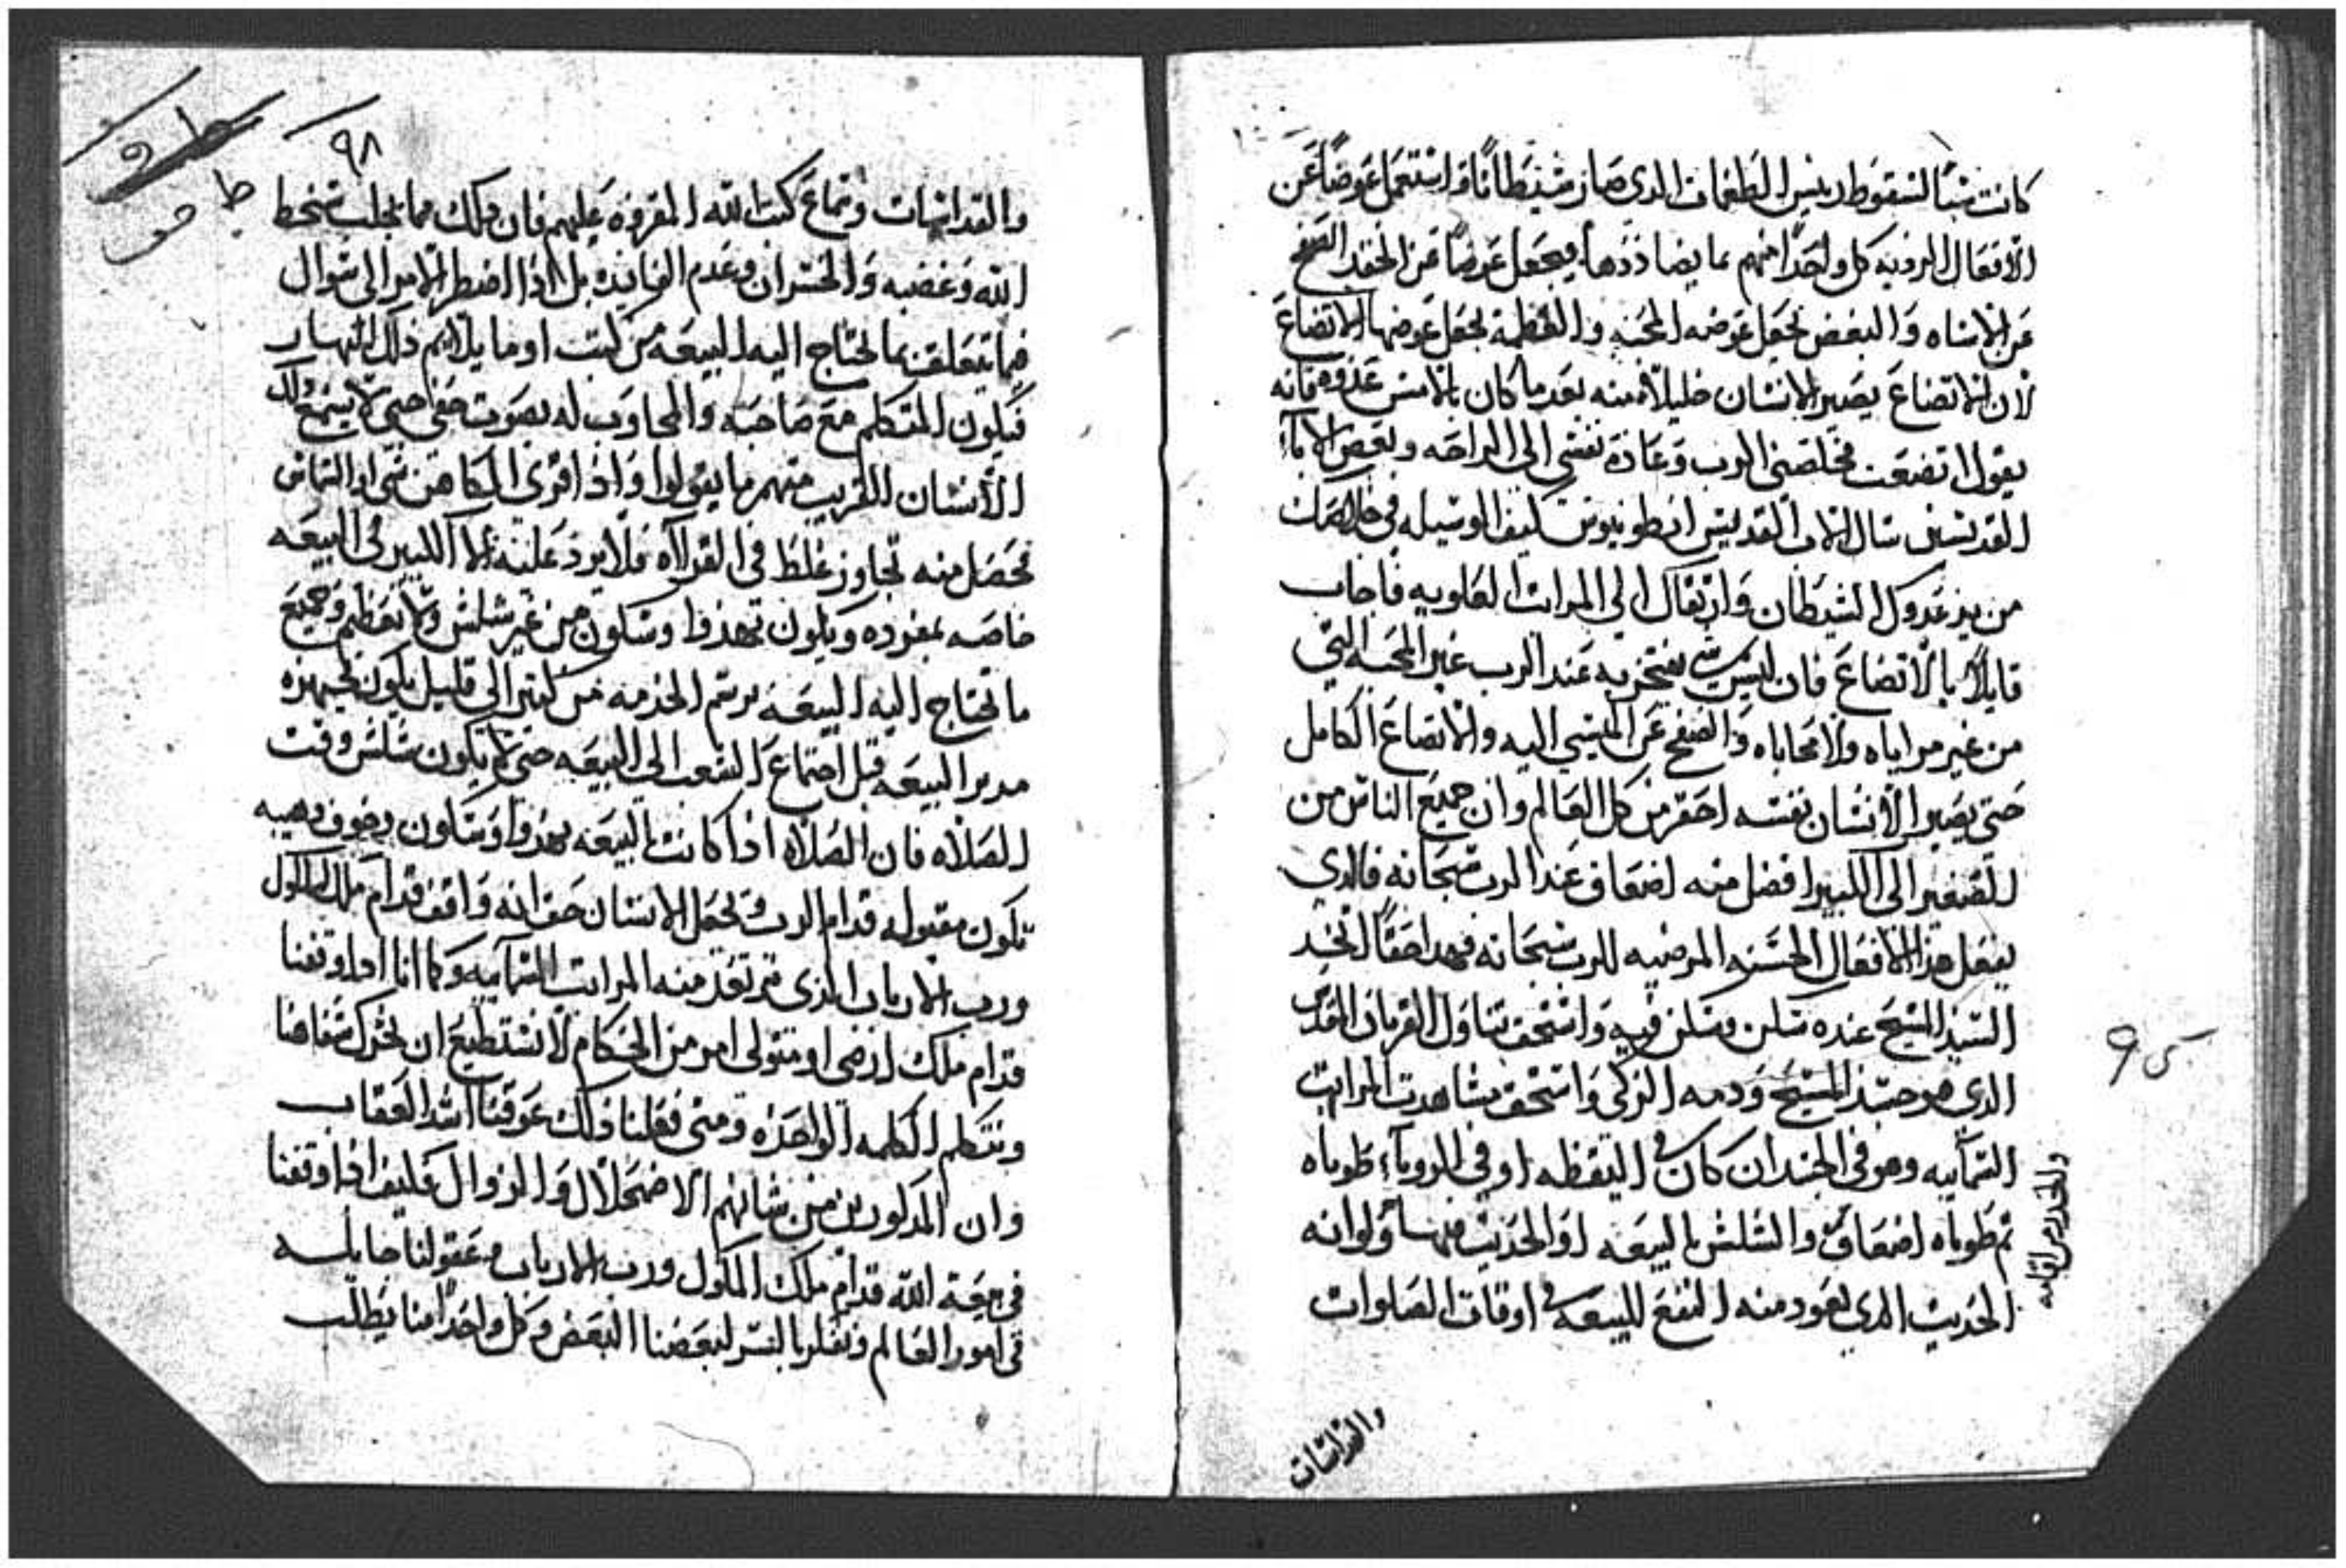 كانت سببًا لسقوط رييس الطغمات الدي صار شيطانًا واستعمل عوضًا عن
الافعال الرديه كل واحدًا منهم بما يضاددها ويجعل عوضًا عن الحقد الصفح
عن الاساه والبغض يجعل عوضه المحبه والعظمة يجعل عوضها الاتضاع
لان الاتضاع يصير الانسان خليلاً منه بعد ما كان بالامس عدوه فانه
يقول اتضعت فخلصني الرب وعادة نفسي الي الراحه وبعض الاباء
القديسين سال الاب القديس انطونيوس كيف الوسيله في خلاصك
من يد عدوك الشيطان وارتقاك الي المراتب العلويه فاجاب
قايلاً بالاتضاع فان ليس شي يفتخر به عند الرب غير المحبه التي
من غير مراياه ولا محاباه والصفح عن المسي اليه والاتضاع الكامل
حتى يصير الانسان نفسه احقر من كل العالم وان جميع الناس من
الصغير الى الكبير افضل منه اضعاف عند الرب سبحانه فالدي
يفعل هذا الافعال الحسنه المرضيه للرب سبحانه فهدا حقًا اتخد
السيد المسيح عنده سكن وسكن فيه واستحق تناول القربان المقدس
الدي هو جسد المسيح ودمه الزكي واستحق مشاهدت المراتب
السمآييه وهو في الجسد ان كان في اليقظه او في الروياء طوباه
ثم طوباه اضعاف والسلس بالبيعه او الحديث فيها ولو انه
الحديث الدي يعود منه النفع للبيعه في اوقات الصلوات
والقداسات
٩٨
والقداسات وسماع كتب الله المقروه عليهم فان دلك مما يجلب سخط
الله وغضبه والخسران وعدم الفايده بل اذا اضطر الامر الى سوال
فيما تتعلق بما تحتاج اليه البيعه من كتب او ما يلايم ذلك النهار
فيكون المتكلم مع صاحبه والمجاوب له بصوت خفي حتى لا يسمع دلك
الانسان القريب منهم ما يقولوا واذا قرى الكاهن شي او الشماس
فحصل منه تجاوز غلط في القراآه فلا يرد عليه الا الكبير في البيعه
خاصه بمفرده ويكون بهدوا وسكون من غير سلس ولا تعظيم وجميع
ما تحتاج اليه البيعه برسم الخدمه من كتير الى قليل يكون يجهزه
مدبر البيعه قبل اجتماع الشعب الى البيعه حتى لا يكون سلس وقت
الصلاه فان الصلاه اذا كانت بالبيعه بهدوا وسكون وخوف وهيبه
تكون مقبوله قدام الرب وتجعل الانسان حق انه واقف قدام ملك الملوك
ورب الارباب الذي ترتعد منه المراتب السمآييه وكما اننا اذا وقفنا
قدام ملك ارضي او متولى امر من الحكام لا نستطيع ان نحرك شفاهنا
ونتكلم الكلمه الواحده ومتى فعلنا ذلك عوقبنا اشد العقاب
وان المدكورين من شانهم الاضمحلال والزوال فكيف اذا وقفنا
في بيعة الله قدام ملك الملوك ورب الارباب وعقولنا جايله
في امور العالم ونفكر بالشر لبعضنا البعض وكل واحدًا منا يطلب